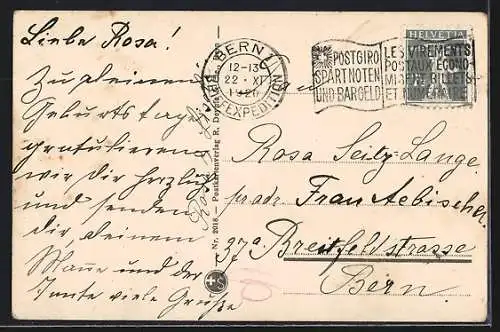 Liebe Rosa!
Zu deinem
Geburtstage
gratulieren
wir dir herzlich
und senden
dir, deinem
Manne und der
Tante viele Grüße
BERN 1
12-13
22. XI
BRIEFEXPEDITION
POSTGIRO
SPART NOTEN
UND BARGELD
LES VIREMENTS
POSTAUX ECONO-
MISENT BILLETS
ET NUMERAIRE
HELVETIA
Nr. 2018 — Postkartenverlag R.
Rosa Seitz-Lange
Frau Aebischer
37a Breitfeldstrasse
Bern.